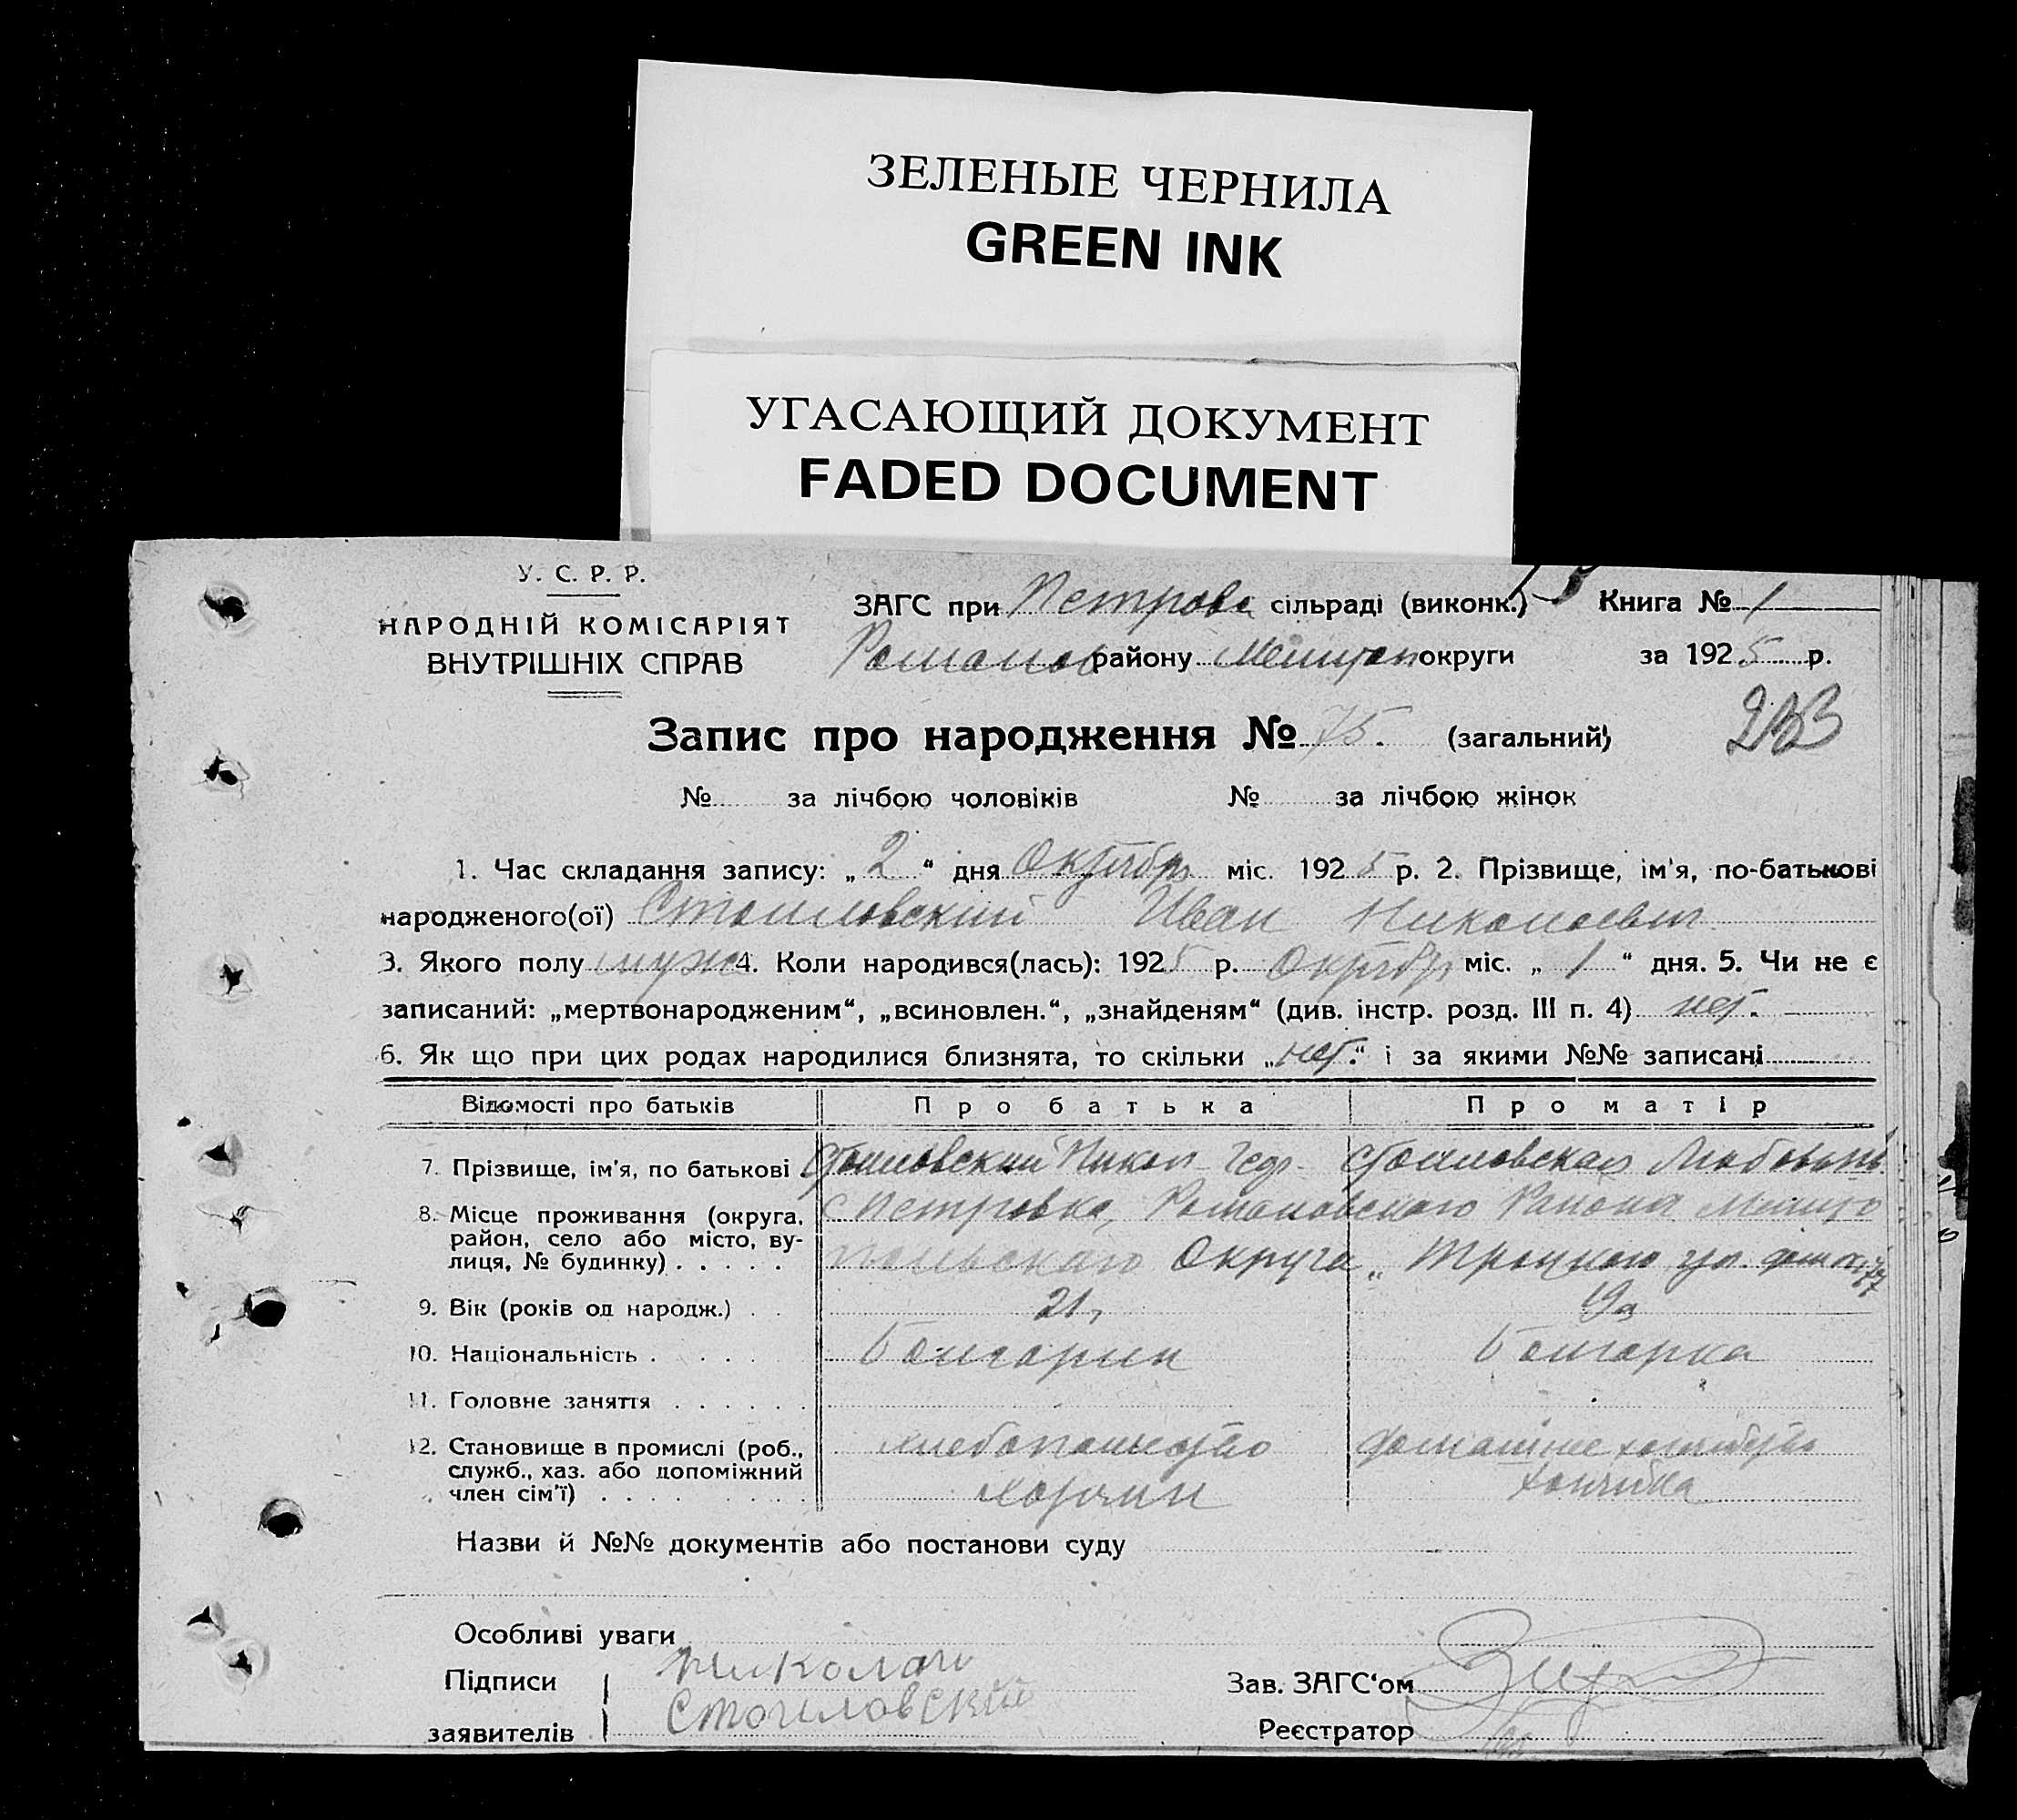 ЗЕЛЕНЫЕ ЧЕРНИЛА
GREEN INK
УГАСАЮЩИЙ ДОКУМЕНТ
FADED DOCUMENT
У. С. Р. Р.
НАРОДНІЙ КОМІСАРІЯТ
ВНУТРІШНІХ СПРАВ
ЗАГС при Петровс сільраді (виконк.) Книга № 1
Романов району Мелитоп округи за 1925 р.
Запис про народження № 75. (загальний)
233
№ за лічбою чоловіків № за лічбою жінок
1. Час складання запису: „ 2 “ дня Октября міс. 1925 р. 2. Прізвище, ім'я, по-батькові
народженого(ої) Стоиловский Иван Николаевич
3. Якого полу муж 4. Коли народився(лась): 1925 р. Октября міс. „ 1 “ дня. 5. Чи не є
записаний: „мертвонародженим“, „всиновлен.“, „знайденям“ (див. інстр. розд. III п. 4) нет.
6. Як що при цих родах народилися близнята, то скільки „нет.“ і за якими №№ записані
Відомості про батьків Про батька Про матір
7. Прізвище, ім'я, по батькові Стоиловский Никол Стоиловская Любовь
8. Місце проживання (округа, с Петровка, Романовского Района Мелито
район, село або місто, ву-
лиця, № будинку) польскаго Округа „ Троцкого ул.
9. Вік (років од народж.) 21 19
10. Національність Болгарин Болгарка
11. Головне заняття
12. Становище в промислі (роб., хлебопашество домашнее хозяйство
служб., хаз. або допоміжний хозяин хозяйка
член сім'ї)
Назви й №№ документів або постанови суду
Особливі уваги
Підписи Николай Зав. ЗАГС'ом
заявителів Стоиловский Реєстратор